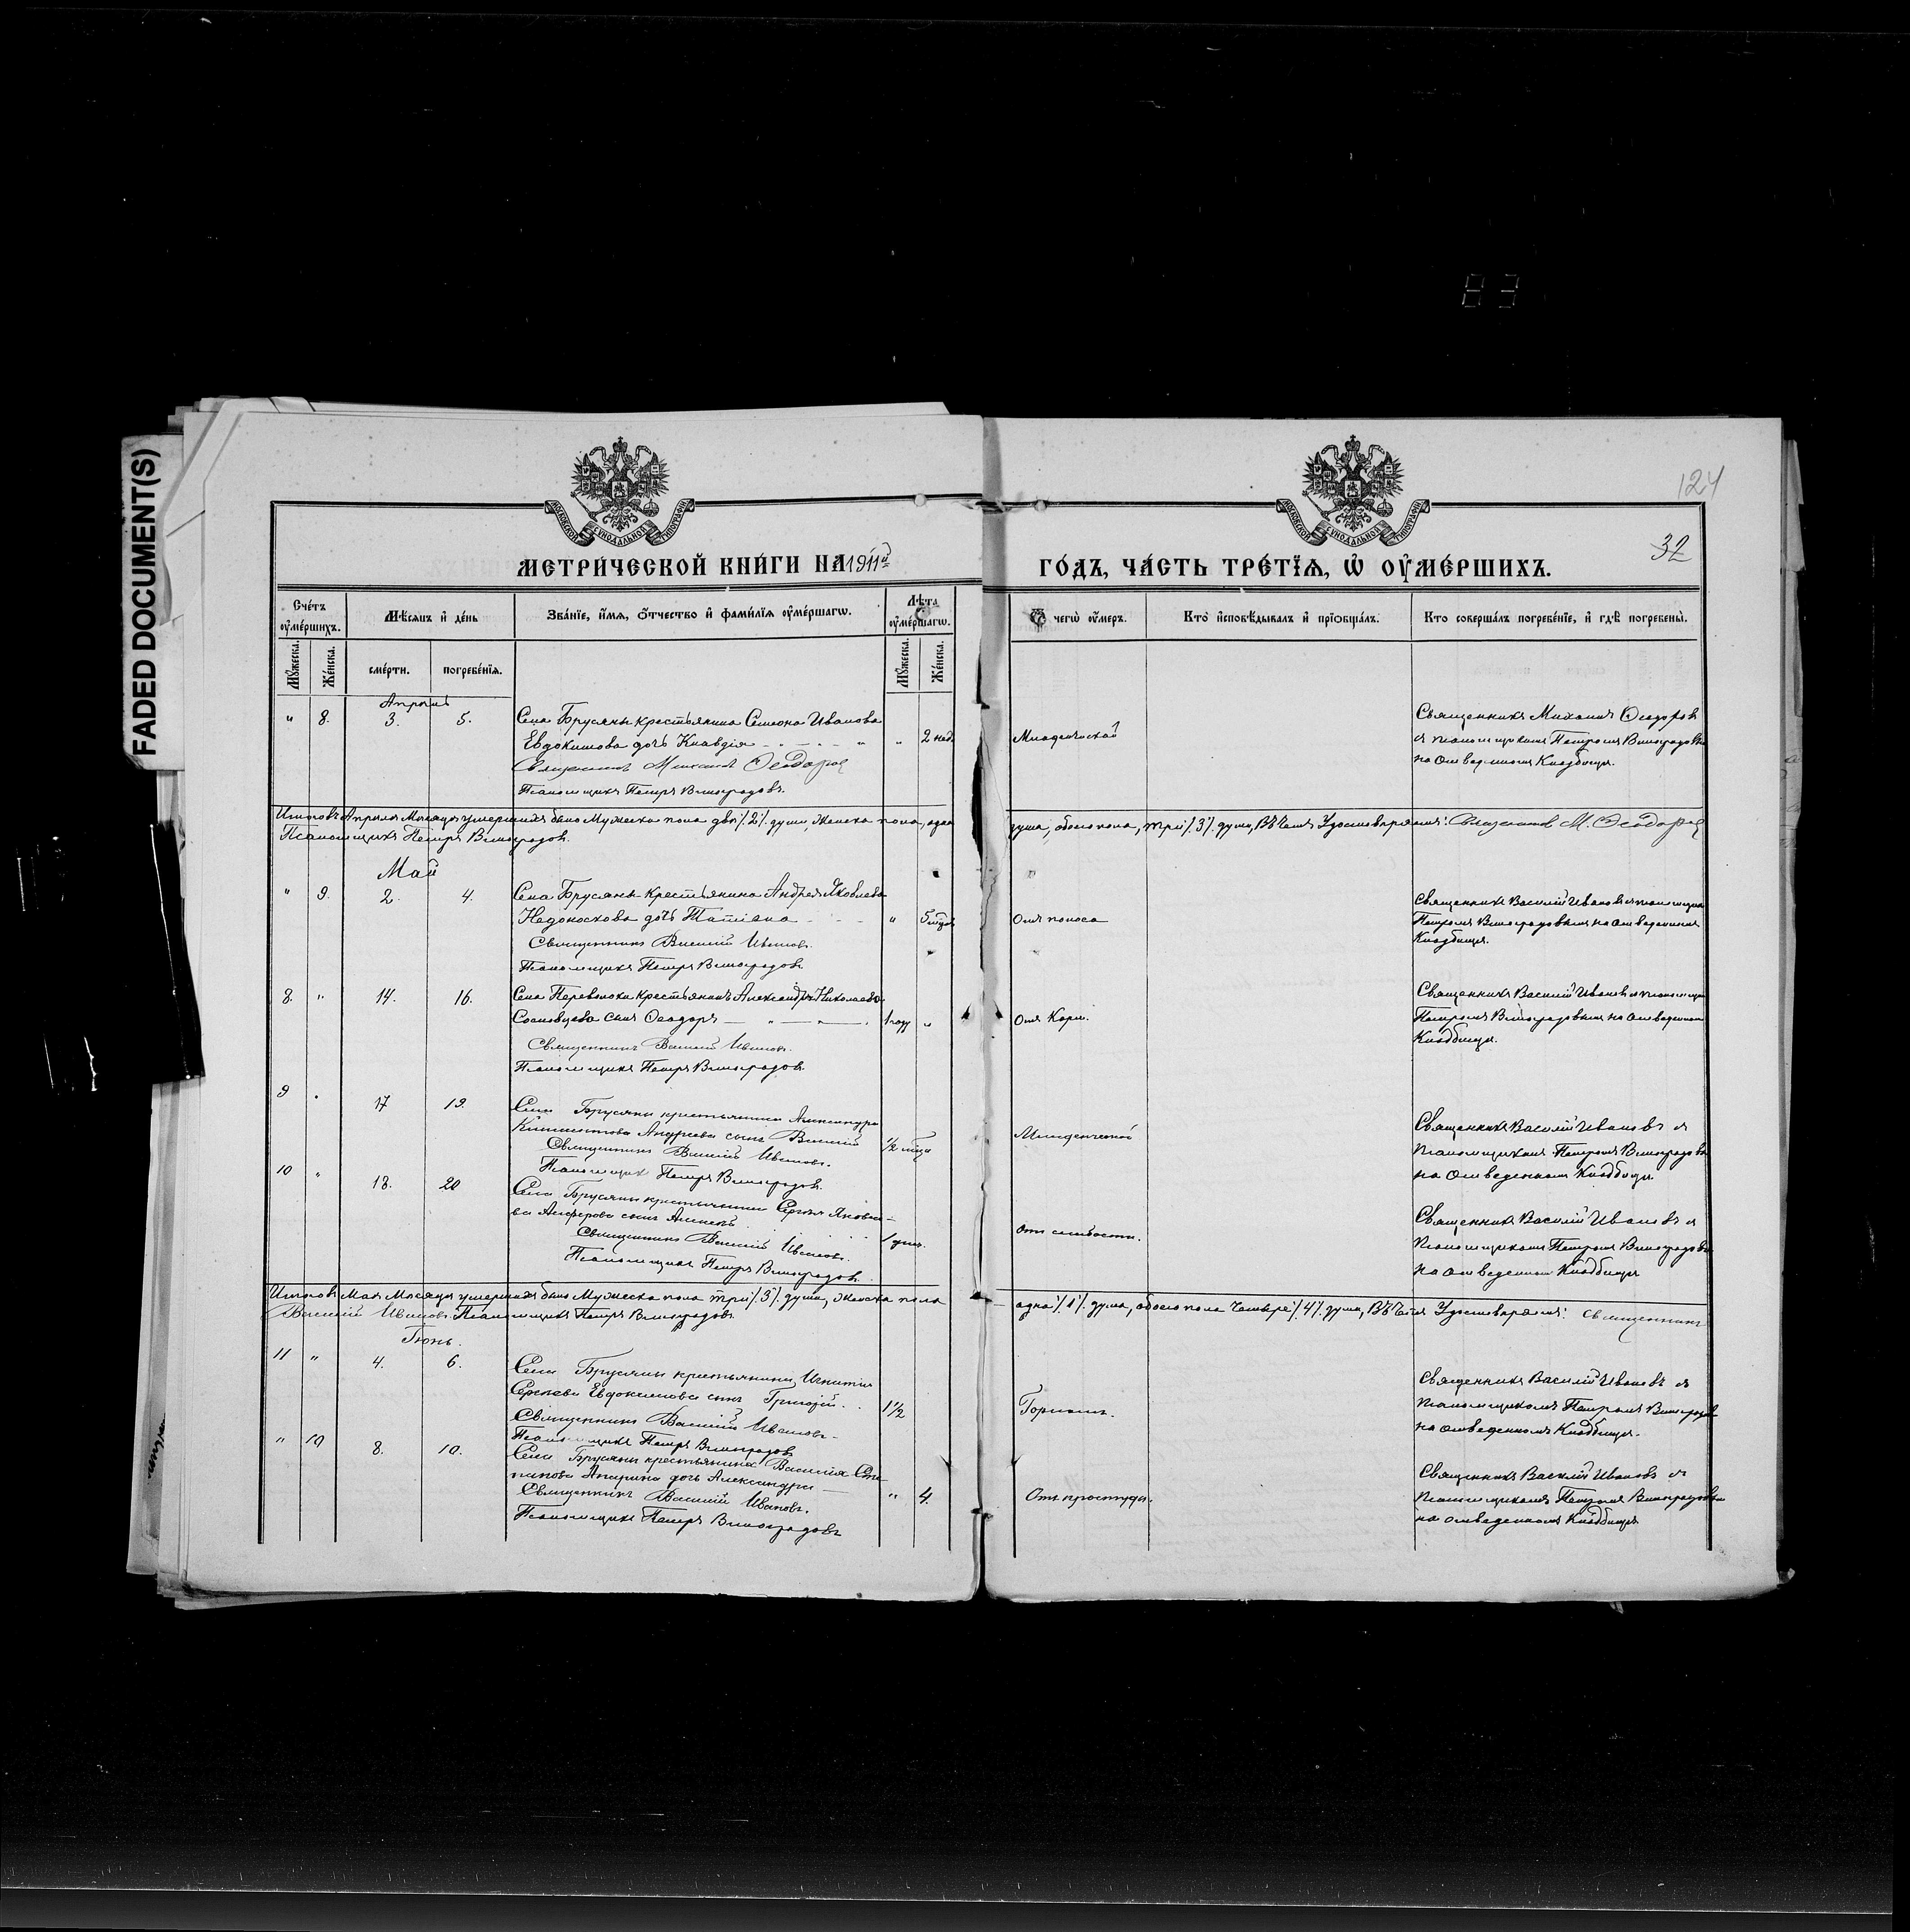 FADED DOCUMENT(S)
83
124
32
МОСКОВСКОЙ СѴНОДАЛЬНОЙ ТИПОГРАФІИ
МОСКОВСКОЙ СѴНОДАЛЬНОЙ ТИПОГРАФІИ
МЕТРИ́ЧЕСКОЙ КНИ́ГИ НА 1911й
ГО́ДЪ, ЧА́СТЬ ТРЕ́ТЇѦ, Ѡ ОУ҆МЕ́РШИХЪ.
Сче́тъ оу҆ме́ршихъ.
Мѣ́сѧцъ и҆ де́нь
Зва́нїе, и҆́мѧ, ѻ҆́тчество и҆ фами́лїѧ оу҆ме́ршагѡ.
Лѣ́та оу҆ме́ршагѡ.
Ѿ чегѡ̀ оу҆́меръ.
Кто̀ и҆сповѣ́дывалъ и҆ прїѻбща́лъ.
Кто соверша́лъ погребе́нїе, и҆ гдѣ̀ погребены̀.
Мꙋ́жеска.
Же́нска.
сме́рти.
погребе́нїѧ.
Мꙋ́жеска.
Же́нска.
Апрѣль
" 8. 3. 5. Села Брусяны крестьянина Симеона Иванова
Евдокимова дочь Клавдія " " 2 нед.
Священникъ Михаилъ Ѳеодоровъ
Псаломщикъ Петръ Виноградовъ.
Младенческой
Священникъ Михаилъ Ѳеодоровъ
и псаломщикомъ Петромъ Виноградовымъ
на отведенномъ Кладбищѣ.
Итого въ Апрѣлѣ мѣсяцѣ умершихъ было Мужеска пола двѣ /2/ души, женска пола, одна
душа, обоего пола, три /3/ души, Въ чемъ Удостовѣряемъ: Священникъ М. Ѳеодоровъ
Псаломщикъ Петръ Виноградовъ.
Май
" 9. 2. 4. Села Брусянъ Крестьянина Андрея Яковлева
Недоноскова дочь Татіана " 5 мѣс.
Священникъ Василій Ивановъ.
Псаломщикъ Петръ Виноградовъ
Отъ поноса
Священникъ Василій Ивановъ и псаломщикъ
Петромъ Виноградовымъ на отведенномъ
Кладбищѣ.
8. " 14. 16. Села Переволоки крестьянинъ Александръ Николаева
сынъ Ѳеодоръ — " — " — 1 году "
Священникъ Василій Ивановъ.
Псаломщикъ Петръ Виноградовъ
Отъ Кори.
Священникъ Василій Ивановъ и псаломщик
Петромъ Виноградовымъ на отведенномъ
Кладбищѣ.
9 " 17 19. Села Брусяны крестьянина Александра
Андреева сынъ Василій 1/2 мѣс
Священникъ Василій Ивановъ.
Псаломщикъ Петръ Виноградовъ.
Младенческой
Священникъ Василій Ивановъ и
псаломщикомъ Петромъ Виноградовымъ
на отведенномъ Кладбищѣ
10 " 18. 20 Села Брусяны крестьянина Сергѣя Яковле-
ва сынъ Алексѣй 1 дня.
Священникъ Василій Ивановъ.
Псаломщикъ Петръ Виноградовъ
Отъ слабости.
Священникъ Василій Ивановъ и
псаломщикомъ Петромъ Виноградовымъ
на отведенномъ Кладбищѣ
Итого въ Маѣ Мѣсяцѣ умершихъ было Мужеска пола три /3/ души, женска пола
одна /1/ душа, обоего пола четыре /4/ души, Въ чемъ Удостовѣряемъ: Священникъ
Василій Ивановъ. Псаломщикъ Петръ Виноградовъ
Іюнь.
11 " 4. 6. Села Брусяны крестьянина Игнатія
Сергѣева Евдокимова сынъ Григорій. 1 1/2
Священникъ Василій Ивановъ
Псаломщикъ Петръ Виноградовъ
Горломъ.
Священникъ Василій Ивановъ и
псаломщикомъ Петромъ Виноградов
на отведенномъ Кладбищѣ.
" 10 8. 10. Села Брусяны крестьянина Василія Сте-
панова дочь Александра — " 4.
Священникъ Василій Ивановъ.
Псаломщикъ Петръ Виноградовъ
Отъ простуды.
Священникъ Василій Ивановъ и
псаломщикомъ Петромъ Виноградовымъ
на отведенномъ Кладбищѣ